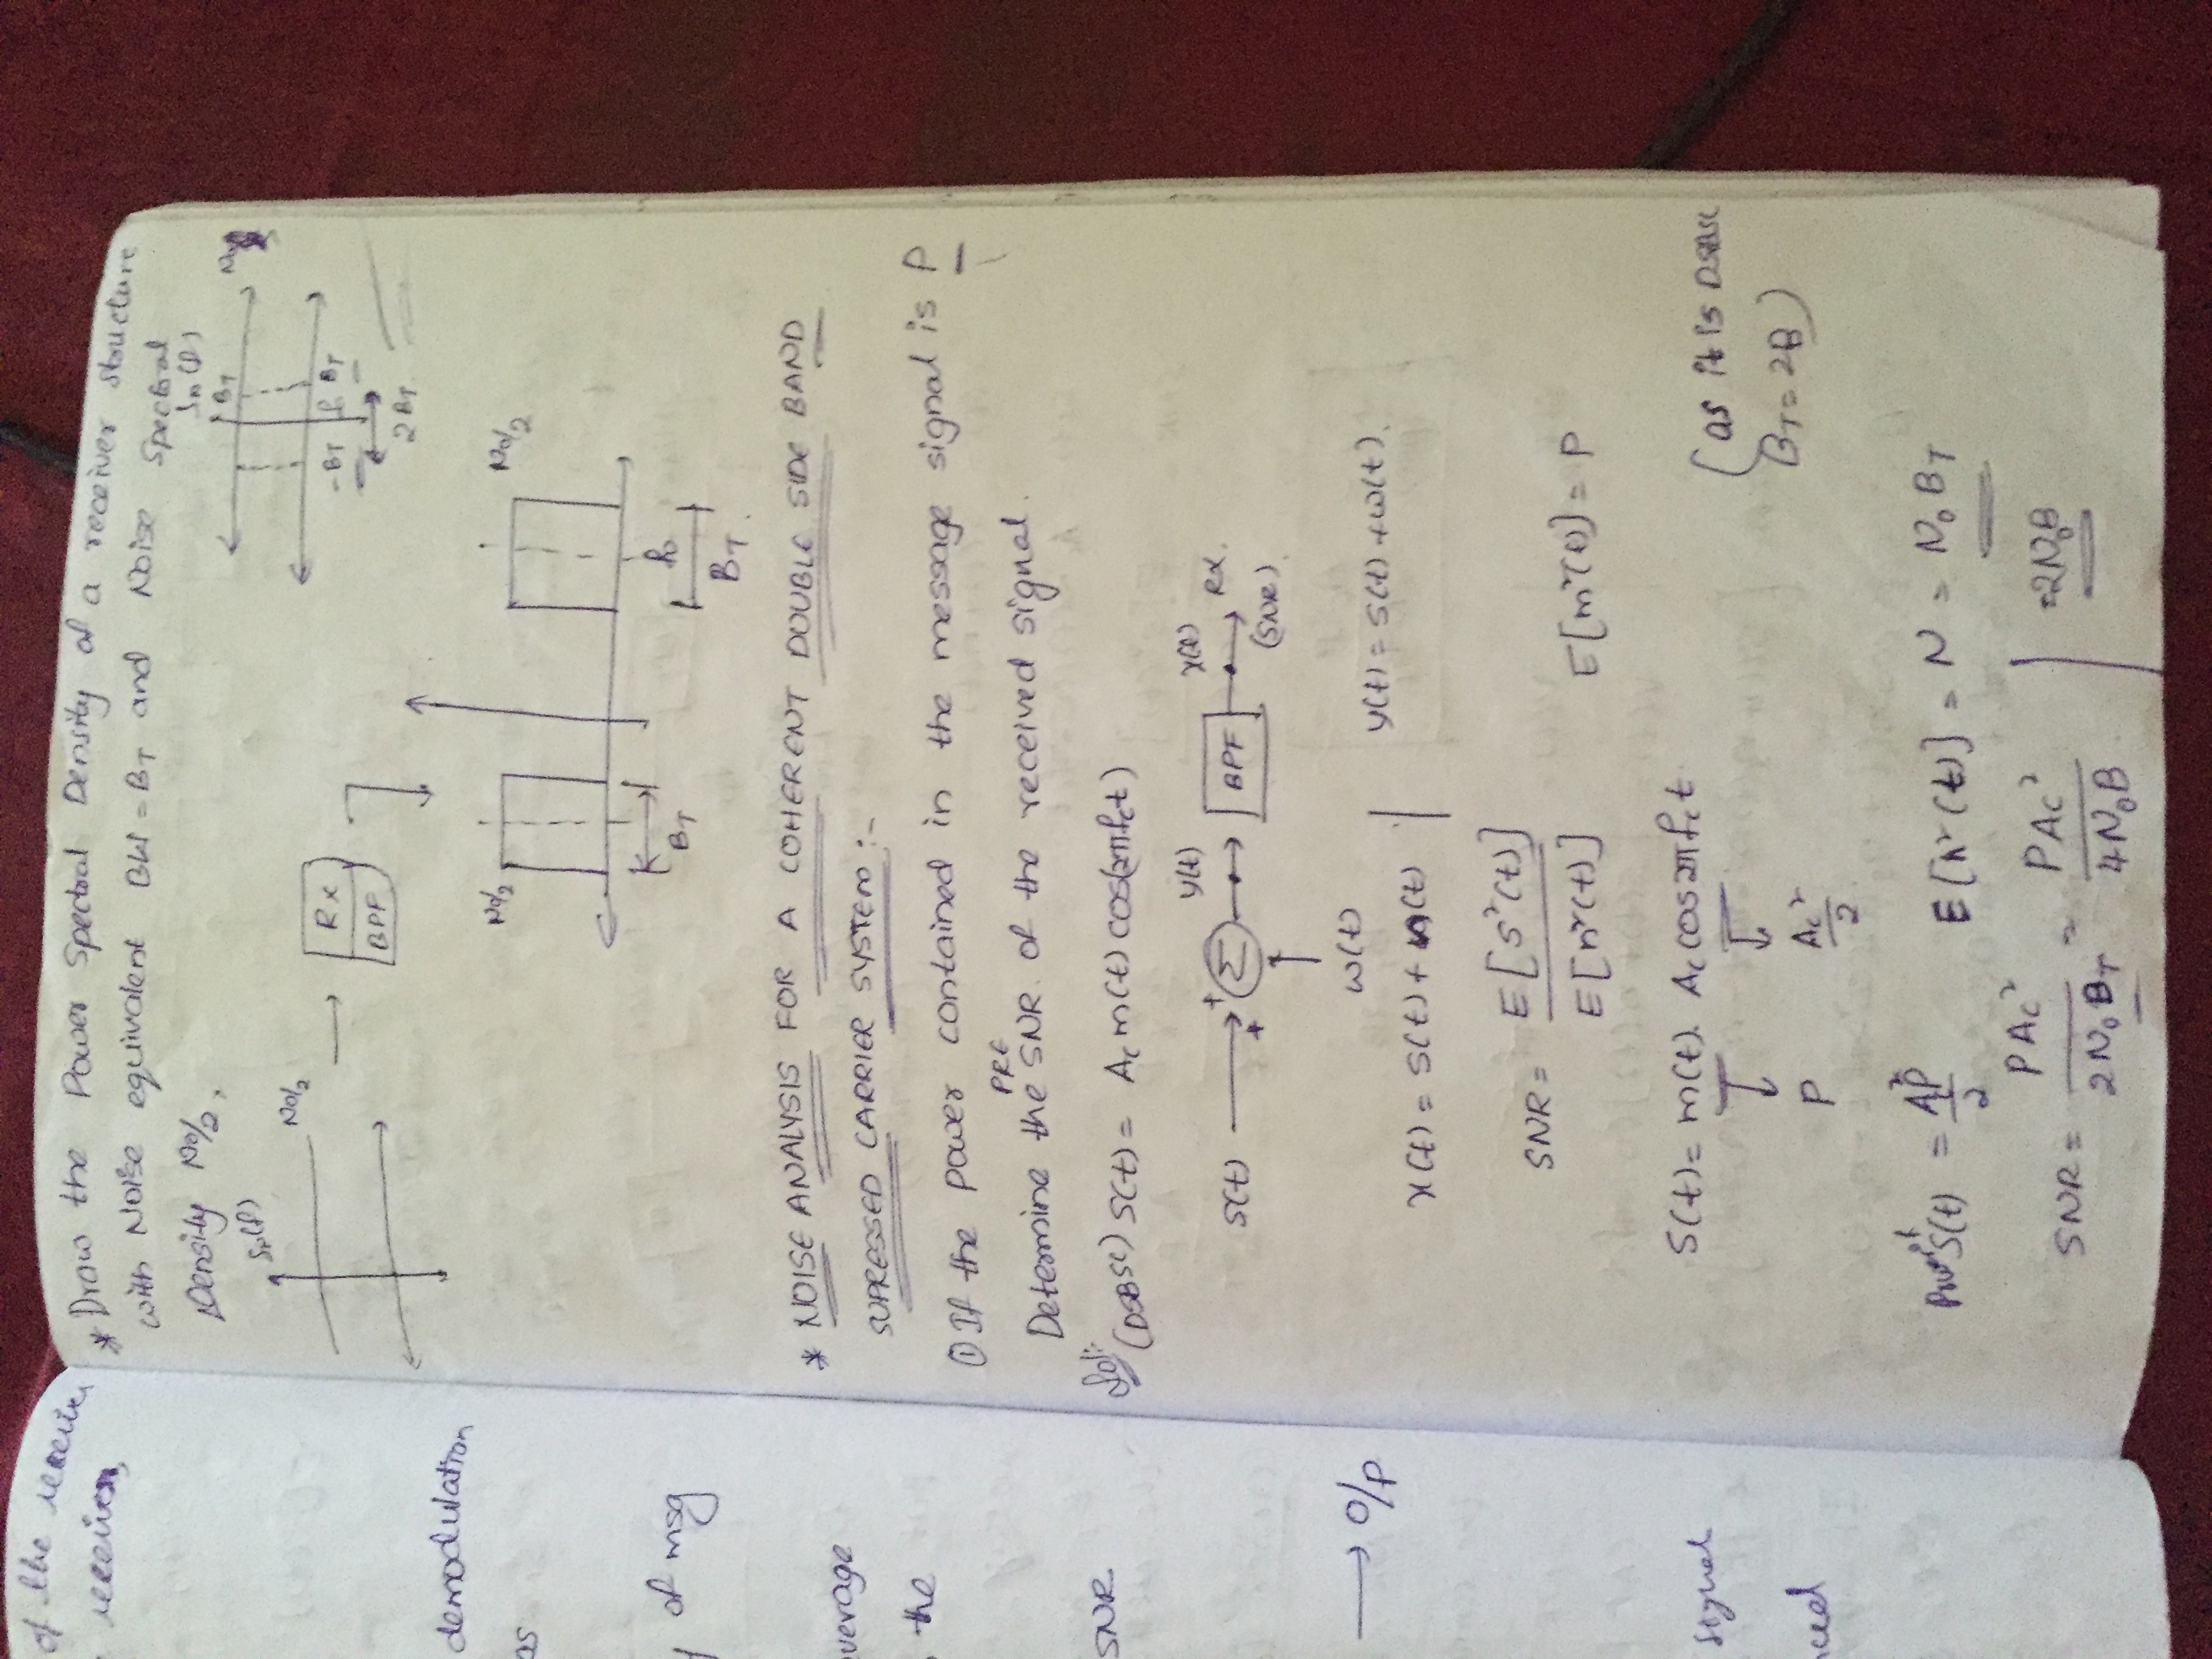 of the receiver
receiver,
demodulation
as
y of msg
average
, the
SNR
→ O/P
signal
* Draw the Power Spectral Density of a receiver structure
with Noise equivalent BW = B_T and Noise Spectral
Density No/2.
Sn(f)
No/2
Rx
BPF
Sn(f)
B_T
-B_T f B_T
2B_T
No/2
No/2
B_T
fo
B_T.
* NOISE ANALYSIS FOR A COHERENT DOUBLE SIDE BAND
SUPRESSED CARRIER SYSTEM :-
① If the power contained in the message signal is P
Determine the PRE SNR. of the received signal.
Sol:-
(DSBSC) S(t) = A_c m(t) cos(2πf_c t)
S(t) + + Σ y(t) BPF x(t) Rx.
(SNR).
w(t)
x(t) = S(t) + n(t) | y(t) = S(t) + w(t).
SNR = E[S²(t)] / E[n²(t)]
E[m²(t)] = P
S(t) = m(t). A_c cos2πf_c t
P A_c²/2
(as it is DSBSC
B_T = 2B)
Power of S(t) = A_c²P/2 E[n²(t)] = N = N₀B_T
SNR = PA_c²/2N₀B_T = PA_c²/4N₀B | =2N₀B